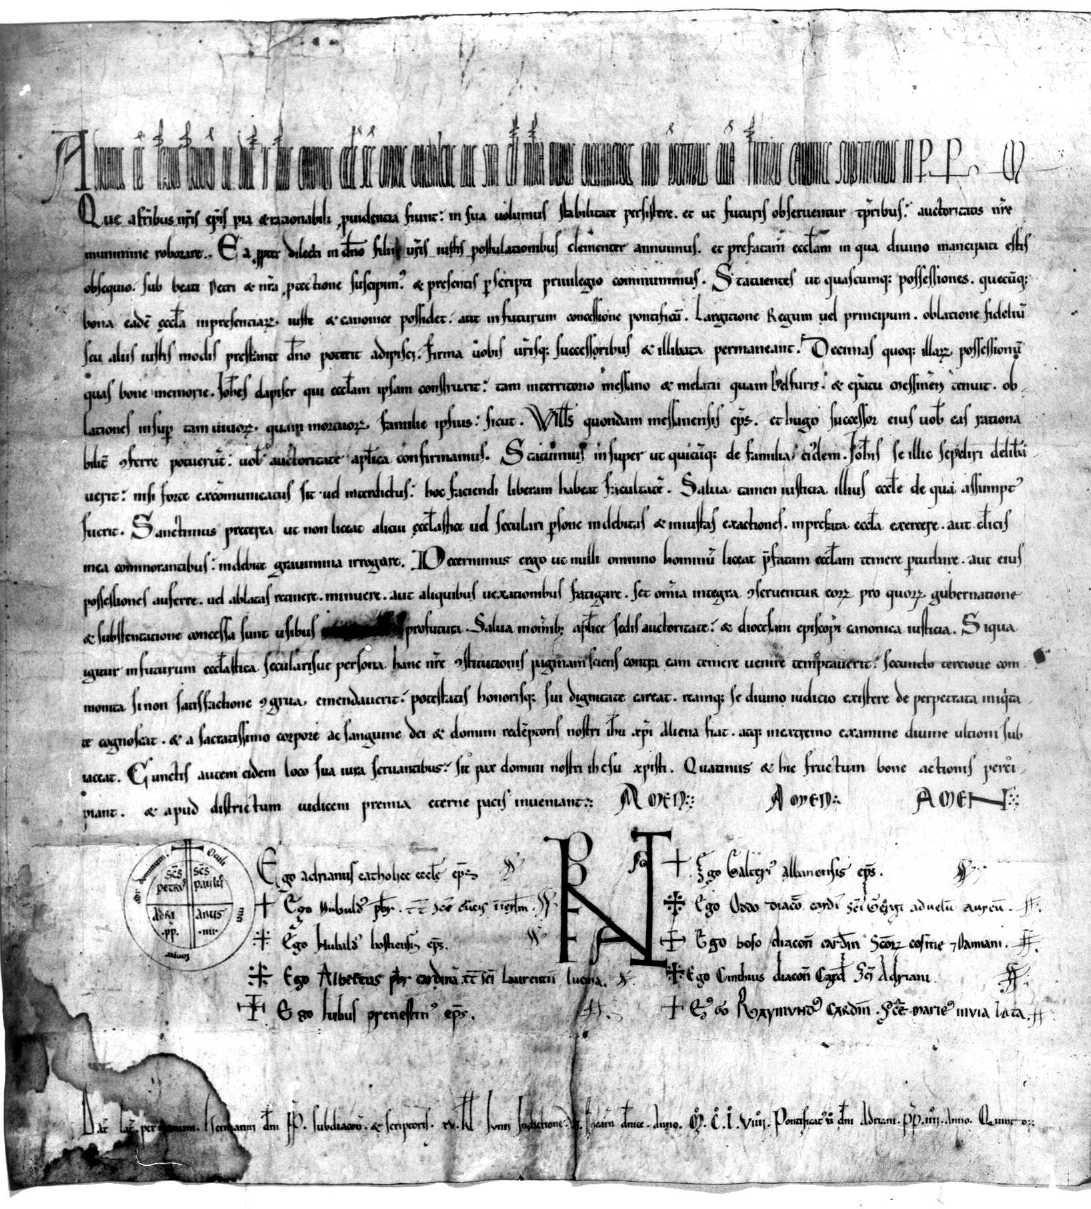 Que a fribus nris epis pia et rationabili prudencia fiunt: in sua volumus stabilitate persistere. et ut futuris observentur tpribus: auctoritatis nre
munimine roborare. Ea ppter dilecti in dno filii vris iustis postulationibus clementer annuimus. et prefatam eccliam in qua divino mancipati estis
obsequio. sub beati Petri et nra ptectione suscipim: et presentis scripti privilegio communimus. Statuentes ut quascumq: possessiones. quecuq:
bona eade eccla inpresentiarz. iuste et canonice possidet: aut in futurum concessione pontificu. Largitione Regum vel principum. oblatione fideliu
seu aliis iustis modis prestante dno poterit adipisci. firma vobis vrisq: successoribus et illibata permaneant. Decimas quoq: illarz possessionu
quas bone memorie. Iohes dapifer qui eccliam ipsam construxit: tam interritorio messano et melacii quam: et epatu tenuit. ob
lationes insup tam vivorz. quam mortuorz. familie ipsius: sicut. Wills quondam messanensis eps. et hugo successor eius vob eas rationa
bilit 9ferre potuerut: vob auctoritate aplica confirmamus. Statuimus insuper ut quicuq: de familia eiusdem. Iohis se illic sepeliri delibā
verit: nisi forte excomunicatus sit vel interdictus: hoc faciendi liberam habeat facultate. Salva tamen iusticia illius eccle de qua assumpt
fuerit. Sanctimus preterea ut non liceat alicui ecclastice vel seculari psone indebitas et iniustas exactiones. inprefata eccla exercere. aut clicis
inea commorantibus: indebite gravamina irrogare. Decernimus ergo ut nulli omnino hominu liceat pfatam eccliam temere pturbare. aut eius
possessiones auferre. vel ablatas retinere. minuere. aut aliquibus vexationibus fatigare. set omia integra 9serventur eorz pro quorz gubernatione
et substentatione concessa sunt usibus profutura. Salva aplice sedis auctoritate: et diocesani episcopi canonica iusticia. Siqua
igitur infuturum ecclastica secularisve persona. hanc nre 9stitutionis paginam sciens contra eam temere venire temptaverit: secundo terciove com
monita si non satisfactione 9grua. emendaverit: potestatis honorisq: sui dignitate careat. reamq: se divino iudicio existere de perpetrata iniqita
te cognoscat. et a sacratissimo corpore ac sanguine dei et domini redeptoris nostri ihu xpi aliena fiat. atq: inextremo examine divine ultioni sub
iaceat. Cunctis autem eidem loco sua iura servantibus: sit pax domini nostri ihesu xpisti. Quatinus et hic fructum bone actionis perci
piant. et apud districtum iudicem premia eterne pacis inveniant: AMEN: AMEN: AMEN:
scs petrus scs paulus
Adri anus
pp. iiii.
Ego adrianus catholice eccle eps
Ego hubald pbr. tt sce crucis in ierlm.
Ego Hubald hostiensis eps.
Ego Albertus pbr cardina tt sci laurentii lucina.
Ego Iulius prenestin eps.
Ego Galteri albanensis eps.
Ego Oddo diaco card sci Georgii ad velu aureu.
Ego boso diacon cardin scorz cosme 7 Damiani.
Ego Cinthius diacon Card sci Adriani
Ego Raymund cardin. sce marie in via lata.
Dat Lat per manum. Hermanni dni PP. subdiaconi. et scriptoris. Indictione. Incarn dnice. anno. M. C. L. viiii. Pontificat v dni Adriani. PP. iiii. Anno. Quinto